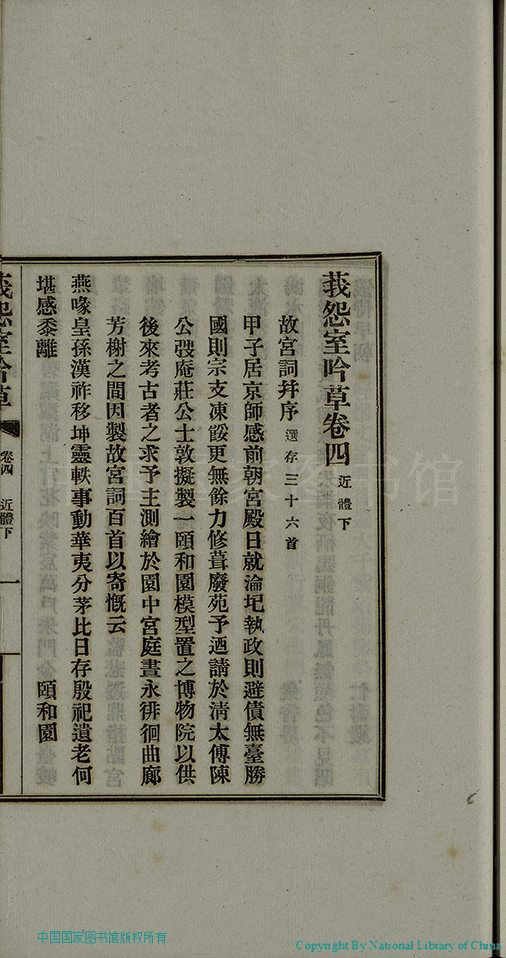 莪怨室吟草卷四 近體下
故宮詞幷序 選存三十六首
甲子居京師感前朝宮殿日就淪圮執政則避債無臺勝
國則宗支凍餒更無餘力修葺廢苑予迺請於淸太傅陳
公弢庵莊公士敦擬製一頤和園模型置之博物院以供
後來考古者之求予主測繪於園中宮庭晝永徘徊曲廊
芳榭之間因製故宮詞百首以寄慨云
燕喙皇孫漢祚移坤靈軼事動華夷分茅比日存殷祀遺老何
堪感黍離 頤和園
莪怨室吟草 卷四 近體下 一
中国国家图书馆版权所有
Copyright By National Library of China